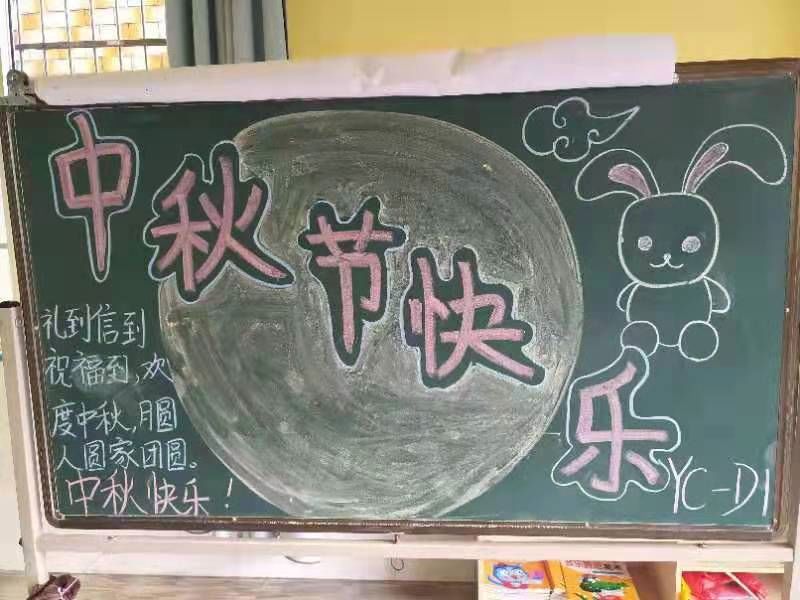 中秋节快乐
礼到信到
祝福到,欢
度中秋,月圆
人圆家团圆。
中秋快乐!
YC-D1